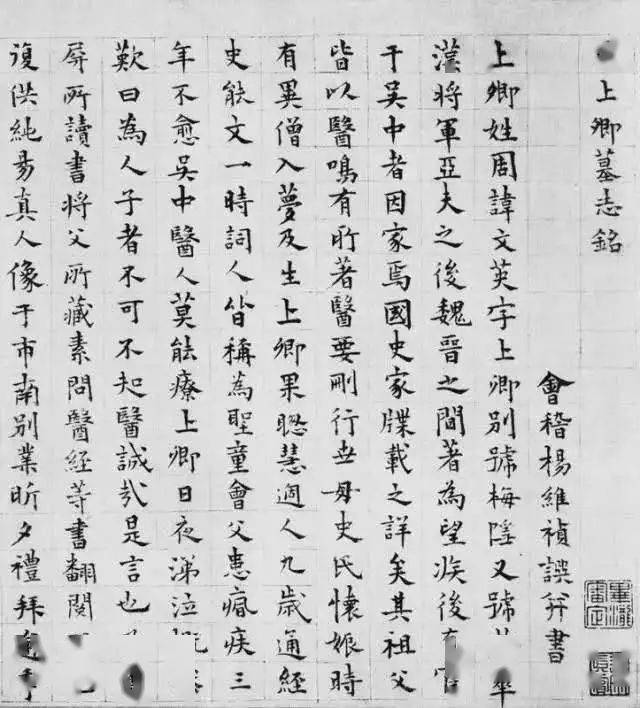 上卿墓志銘
會稽楊維禎譔并書
上卿姓周諱文英字上卿別號梅隱又號
漢將軍亞夫之後魏晉之間著為望族後有官
于吳中者因家焉國史家牒載之詳矣其祖父
皆以醫鳴有所著醫要刪行世母史氏懷娠時
有異僧入夢及生上卿果聦慧過人九歲通經
史能文一時詞人皆稱為聖童會父患痼疾三
年不愈吳中醫人莫能療上卿日夜涕泣
歎曰為人子者不可不知醫誠哉是言也
屏所讀書將父所藏素問醫經等書翻閱
復供純昜真人像于市南別業昕夕禮拜